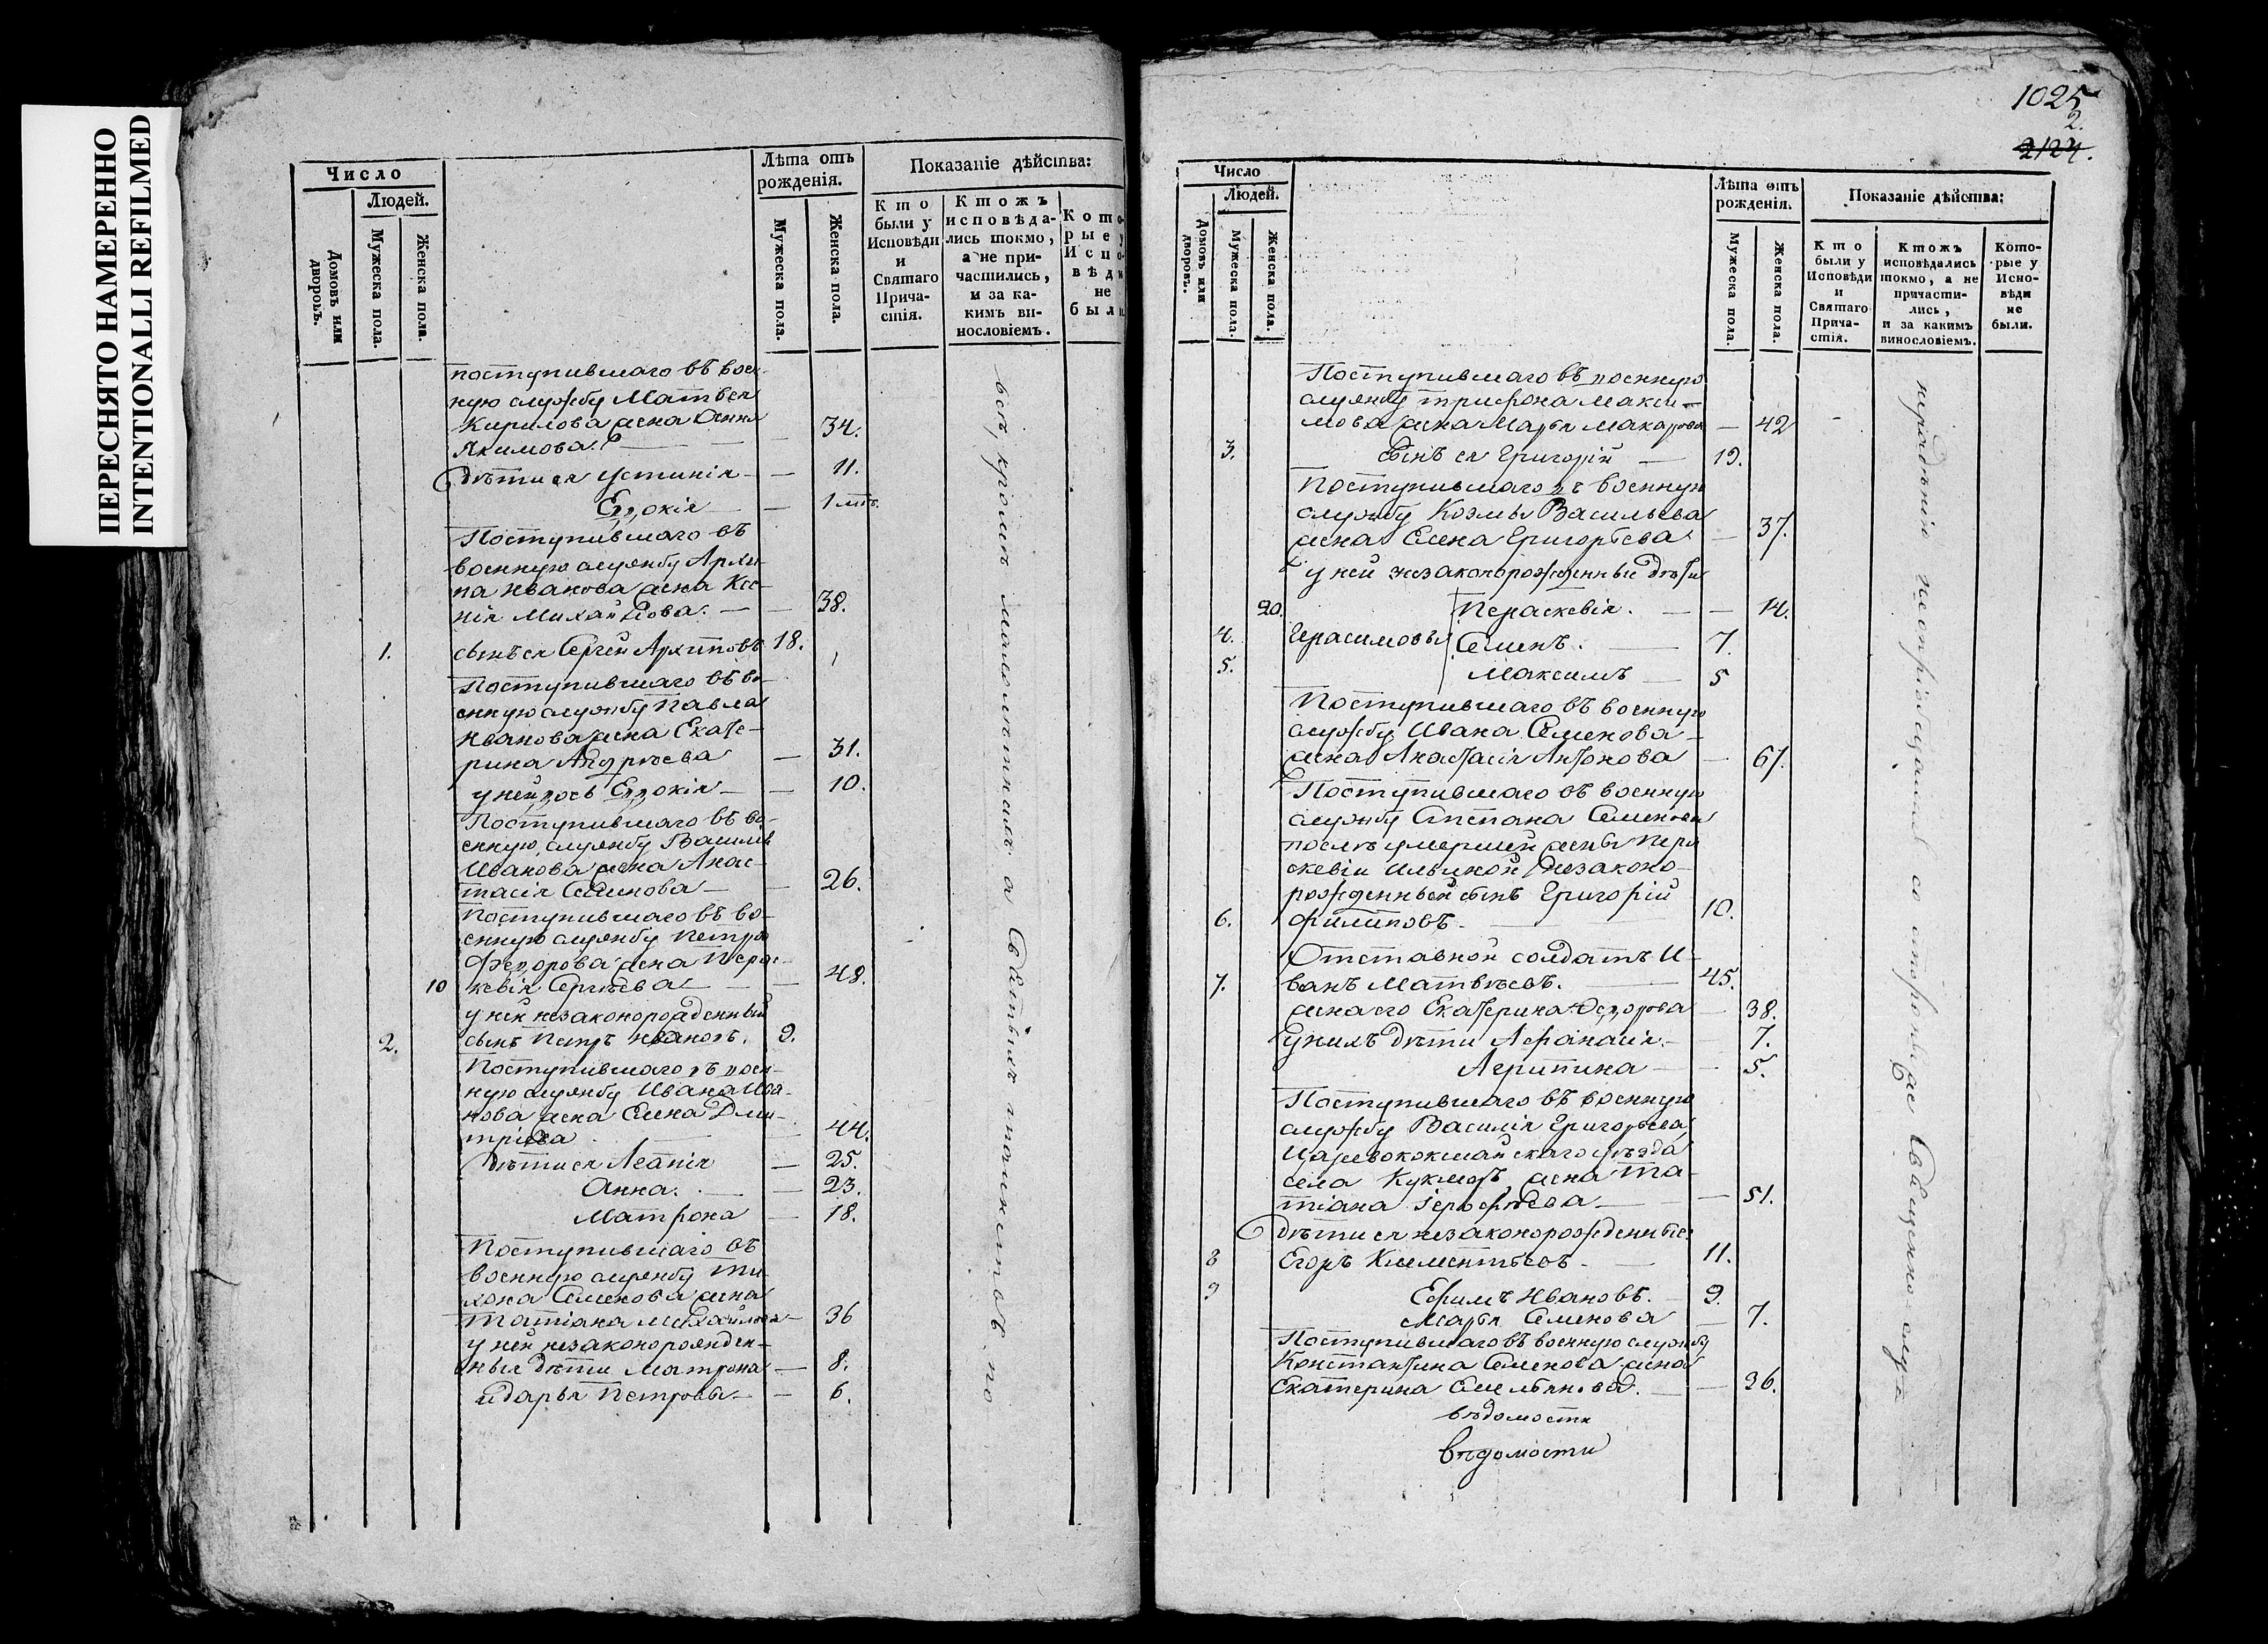 ПЕРЕСНЯТО НАМЕРЕННО
INTENTIONALLI REFILMED
Число
Людей.
Домовъ или дворовъ.
Мужеска пола.
Женска пола.
Лѣта отъ рожденія.
Мужеска пола.
Женска пола.
Показаніе дѣйства:
Кто были у Исповѣди и Святаго Причастія.
Ктожъ исповѣдались токмо, а не причастились, и за какимъ винословіемъ.
Которые у Исповѣди не были
поступившаго въ воен-
ную службу Матвея
Кирилова жена Анна
Якимова. — 34.
дѣти ея Устинія — 11.
Евдокія — 1
Поступившаго въ
военную службу Архи-
па Иванова жена Ксе-
нія Михайлова. — 38.
1. сынъ ея Сергей Архиповъ 18.
Поступившаго въ во-
енную службу Павла
Иванова жена Екате-
рина Андреева — 31.
у ней дочь Евдокія — 10.
Поступившаго въ во-
енную службу Василья
Иванова жена Анас-
тасія Семенова — 26.
Поступившаго въ во-
енную службу Петра
Федорова жена Парас-
10 кевія Сергѣева — 48.
у ней незаконорожденный
2. сынъ Петръ Ивановъ. 9.
Поступившаго въ воен-
ную службу Ивана Ива-
нова жена Елена Дми-
тріева — 44.
дѣти ея Агапія — 25.
Анна. — 23.
Матрона — 18.
Поступившаго въ
военную службу Ти-
хона Семенова жена
Татіана Михайлова — 36
у ней незаконорожден-
ныя дѣти Матрона — 8.
и Дарья Петровы — 6.
всѣ, кромѣ малолѣтнихъ а Святыхъ таинствъ, по
1025
2.
2124.
Число
Людей.
Домовъ или дворовъ.
Мужеска пола.
Женска пола.
Лѣта отъ рожденія.
Мужеска пола.
Женска пола.
Показаніе дѣйства:
Кто были у Исповѣди и Святаго Причастія.
Ктожъ исповѣдались токмо, а не причастились, и за какимъ винословіемъ.
Которые у Исповѣди не были.
Поступившаго въ военную
службу Трифона Макси-
мова жена Марья Макарова — 42
3. сынъ ея Григорій — 19.
Поступившаго въ военную
службу Козмы Васильева
жена Елена Григорьева — 37.
у ней незаконорожденные дѣти
20. Параскевія. — 14.
4. Герасимовы Семенъ. — 7.
5. Максимъ — 5
Поступившаго въ военную
службу Ивана Семенова
жена Анастасія Антонова — 67.
Поступившаго въ военную
службу Степана Семенова
послѣ умершей жены Пара
скевіи Ильиной незаконо-
рожденный сынъ Григорій
6. Филиповъ. — 10.
Отставной солдатъ И-
7. ванъ Матвѣевъ. — 45.
жена его Екатерина Федорова — 38.
у нихъ дѣти Афанасія. — 7.
Агрипина — 5.
Поступившаго въ военную
службу Василія Григорьева
Царевококшайскаго уѣзда
села Кукморъ жена Та-
тіана Іерофѣева — 51.
дѣти ея незаконорожденные
8 Егоръ Клементьевъ. — 11.
9 Ефимъ Ивановъ. — 9.
Марья Семенова — 7.
Поступившаго въ военную службу
Константина Семенова жена
Екатерина Емельянова. — 36.
вѣдомости
вѣдомости
нерадѣнію не пріобщались со стороны Священно-